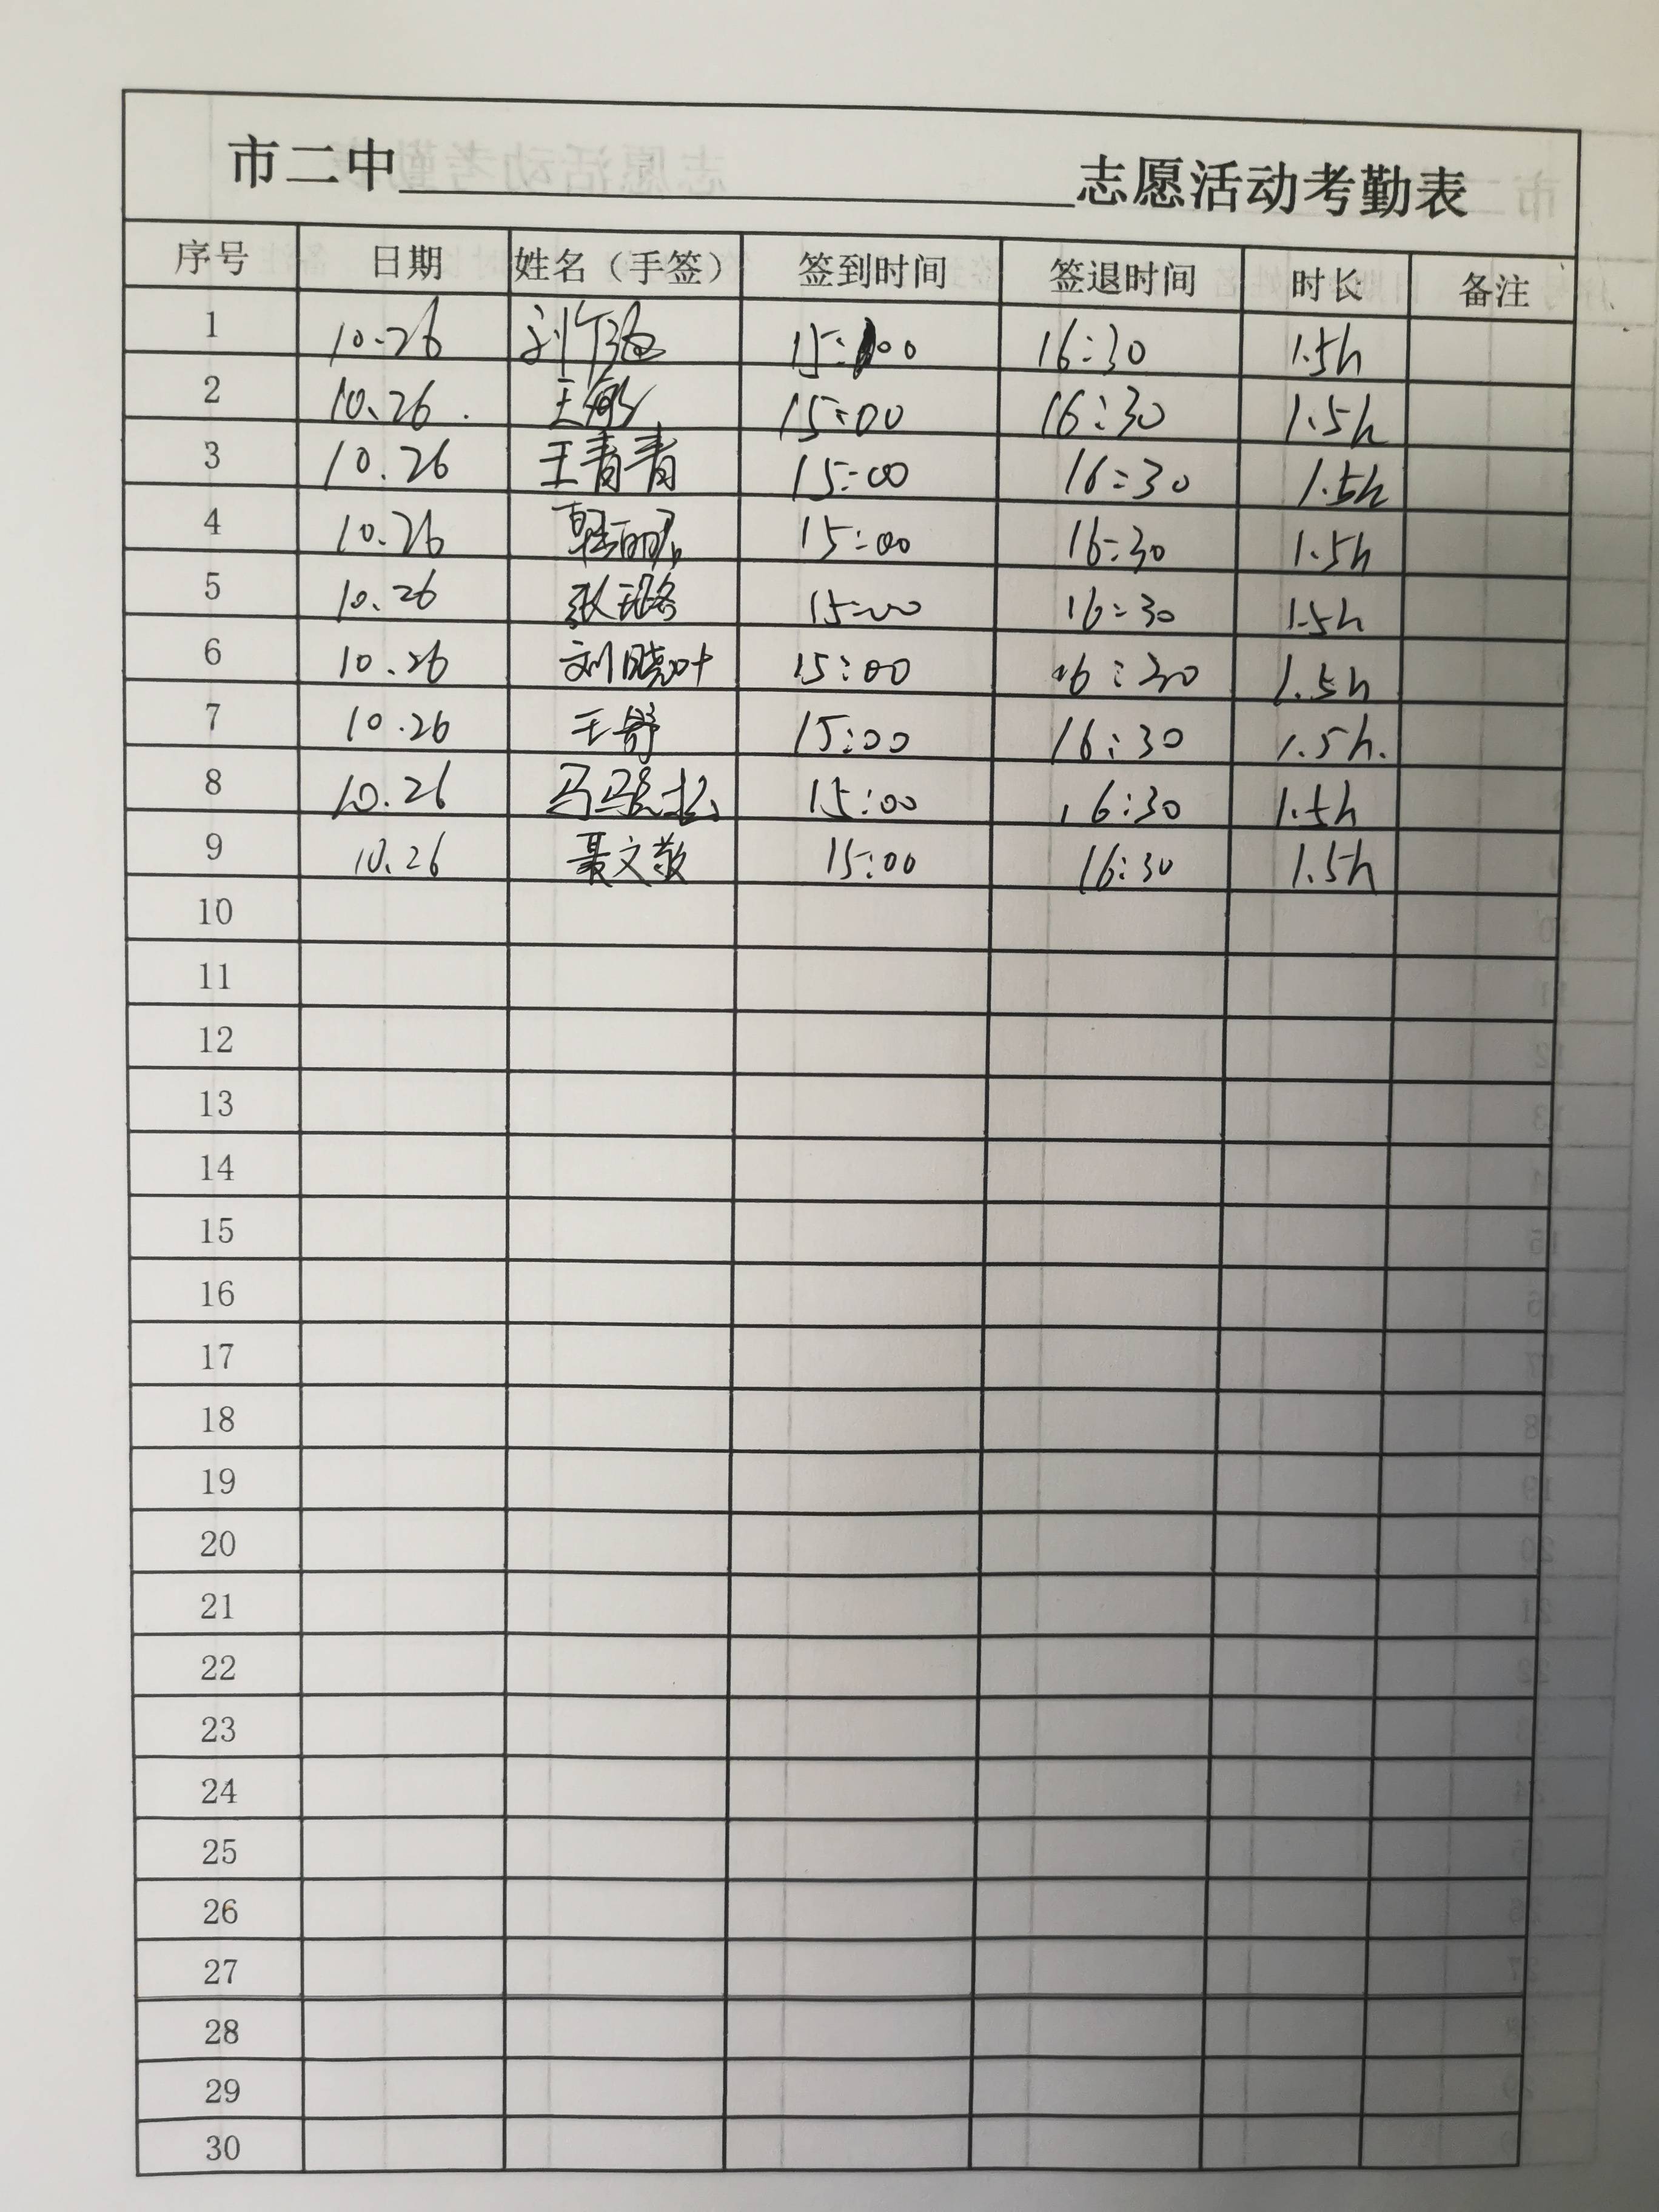 市二中 志愿活动考勤表
序号 日期 姓名（手签） 签到时间 签退时间 时长 备注
1 10.26 15:00 16:30 1.5h
2 10.26. 王敏 15:00 16:30 1.5h
3 10.26 王青青 15:00 16:30 1.5h
4 10.26 15:00 16:30 1.5h
5 10.26 张珺铭 15:00 16:30 1.5h
6 10.26 刘晓叶 15:00 16:30 1.5h
7 10.26 王舒 15:00 16:30 1.5h.
8 10.26 15:00 16:30 1.5h
9 10.26 聂文敬 15:00 16:30 1.5h
10
11
12
13
14
15
16
17
18
19
20
21
22
23
24
25
26
27
28
29
30